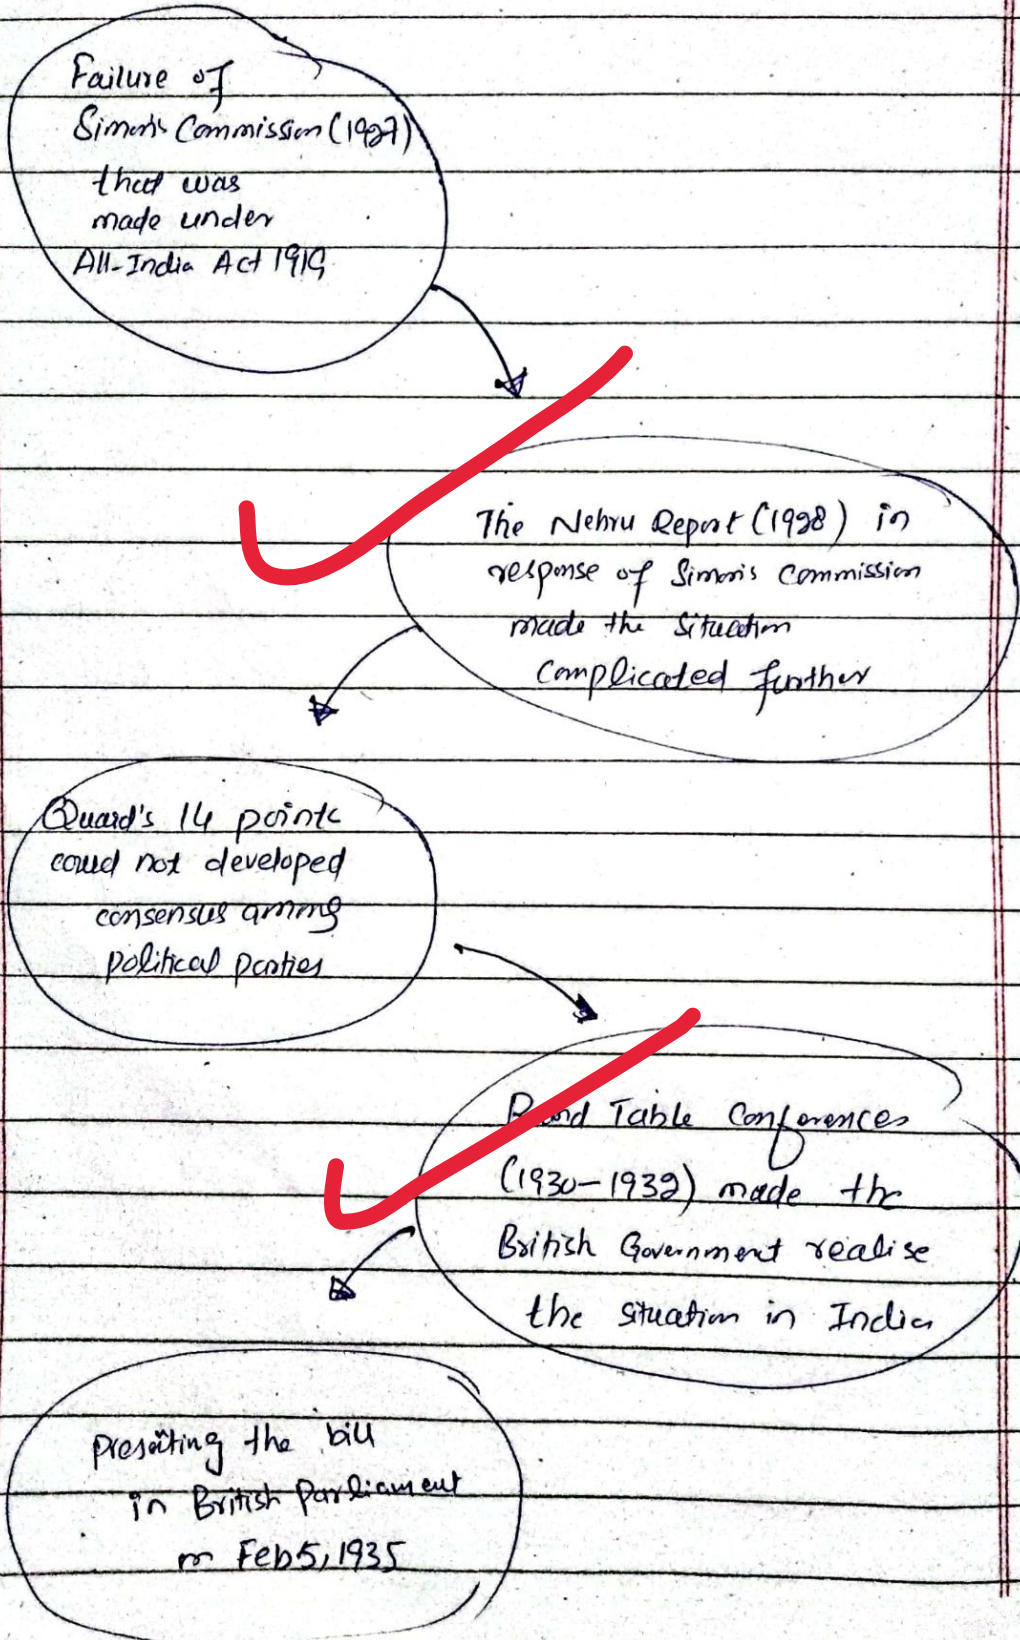 Failure of
Simon's Commission (1927)
that was
made under
All-India Act 1919
The Nehru Report (1928) in
response of Simon's Commission
made the situation
complicated further
Quaid's 14 points
could not developed
consensus among
political parties
Round Table Conferences
(1930-1932) made the
British Government realise
the situation in India
presenting the bill
in British Parliament
on Feb 5, 1935